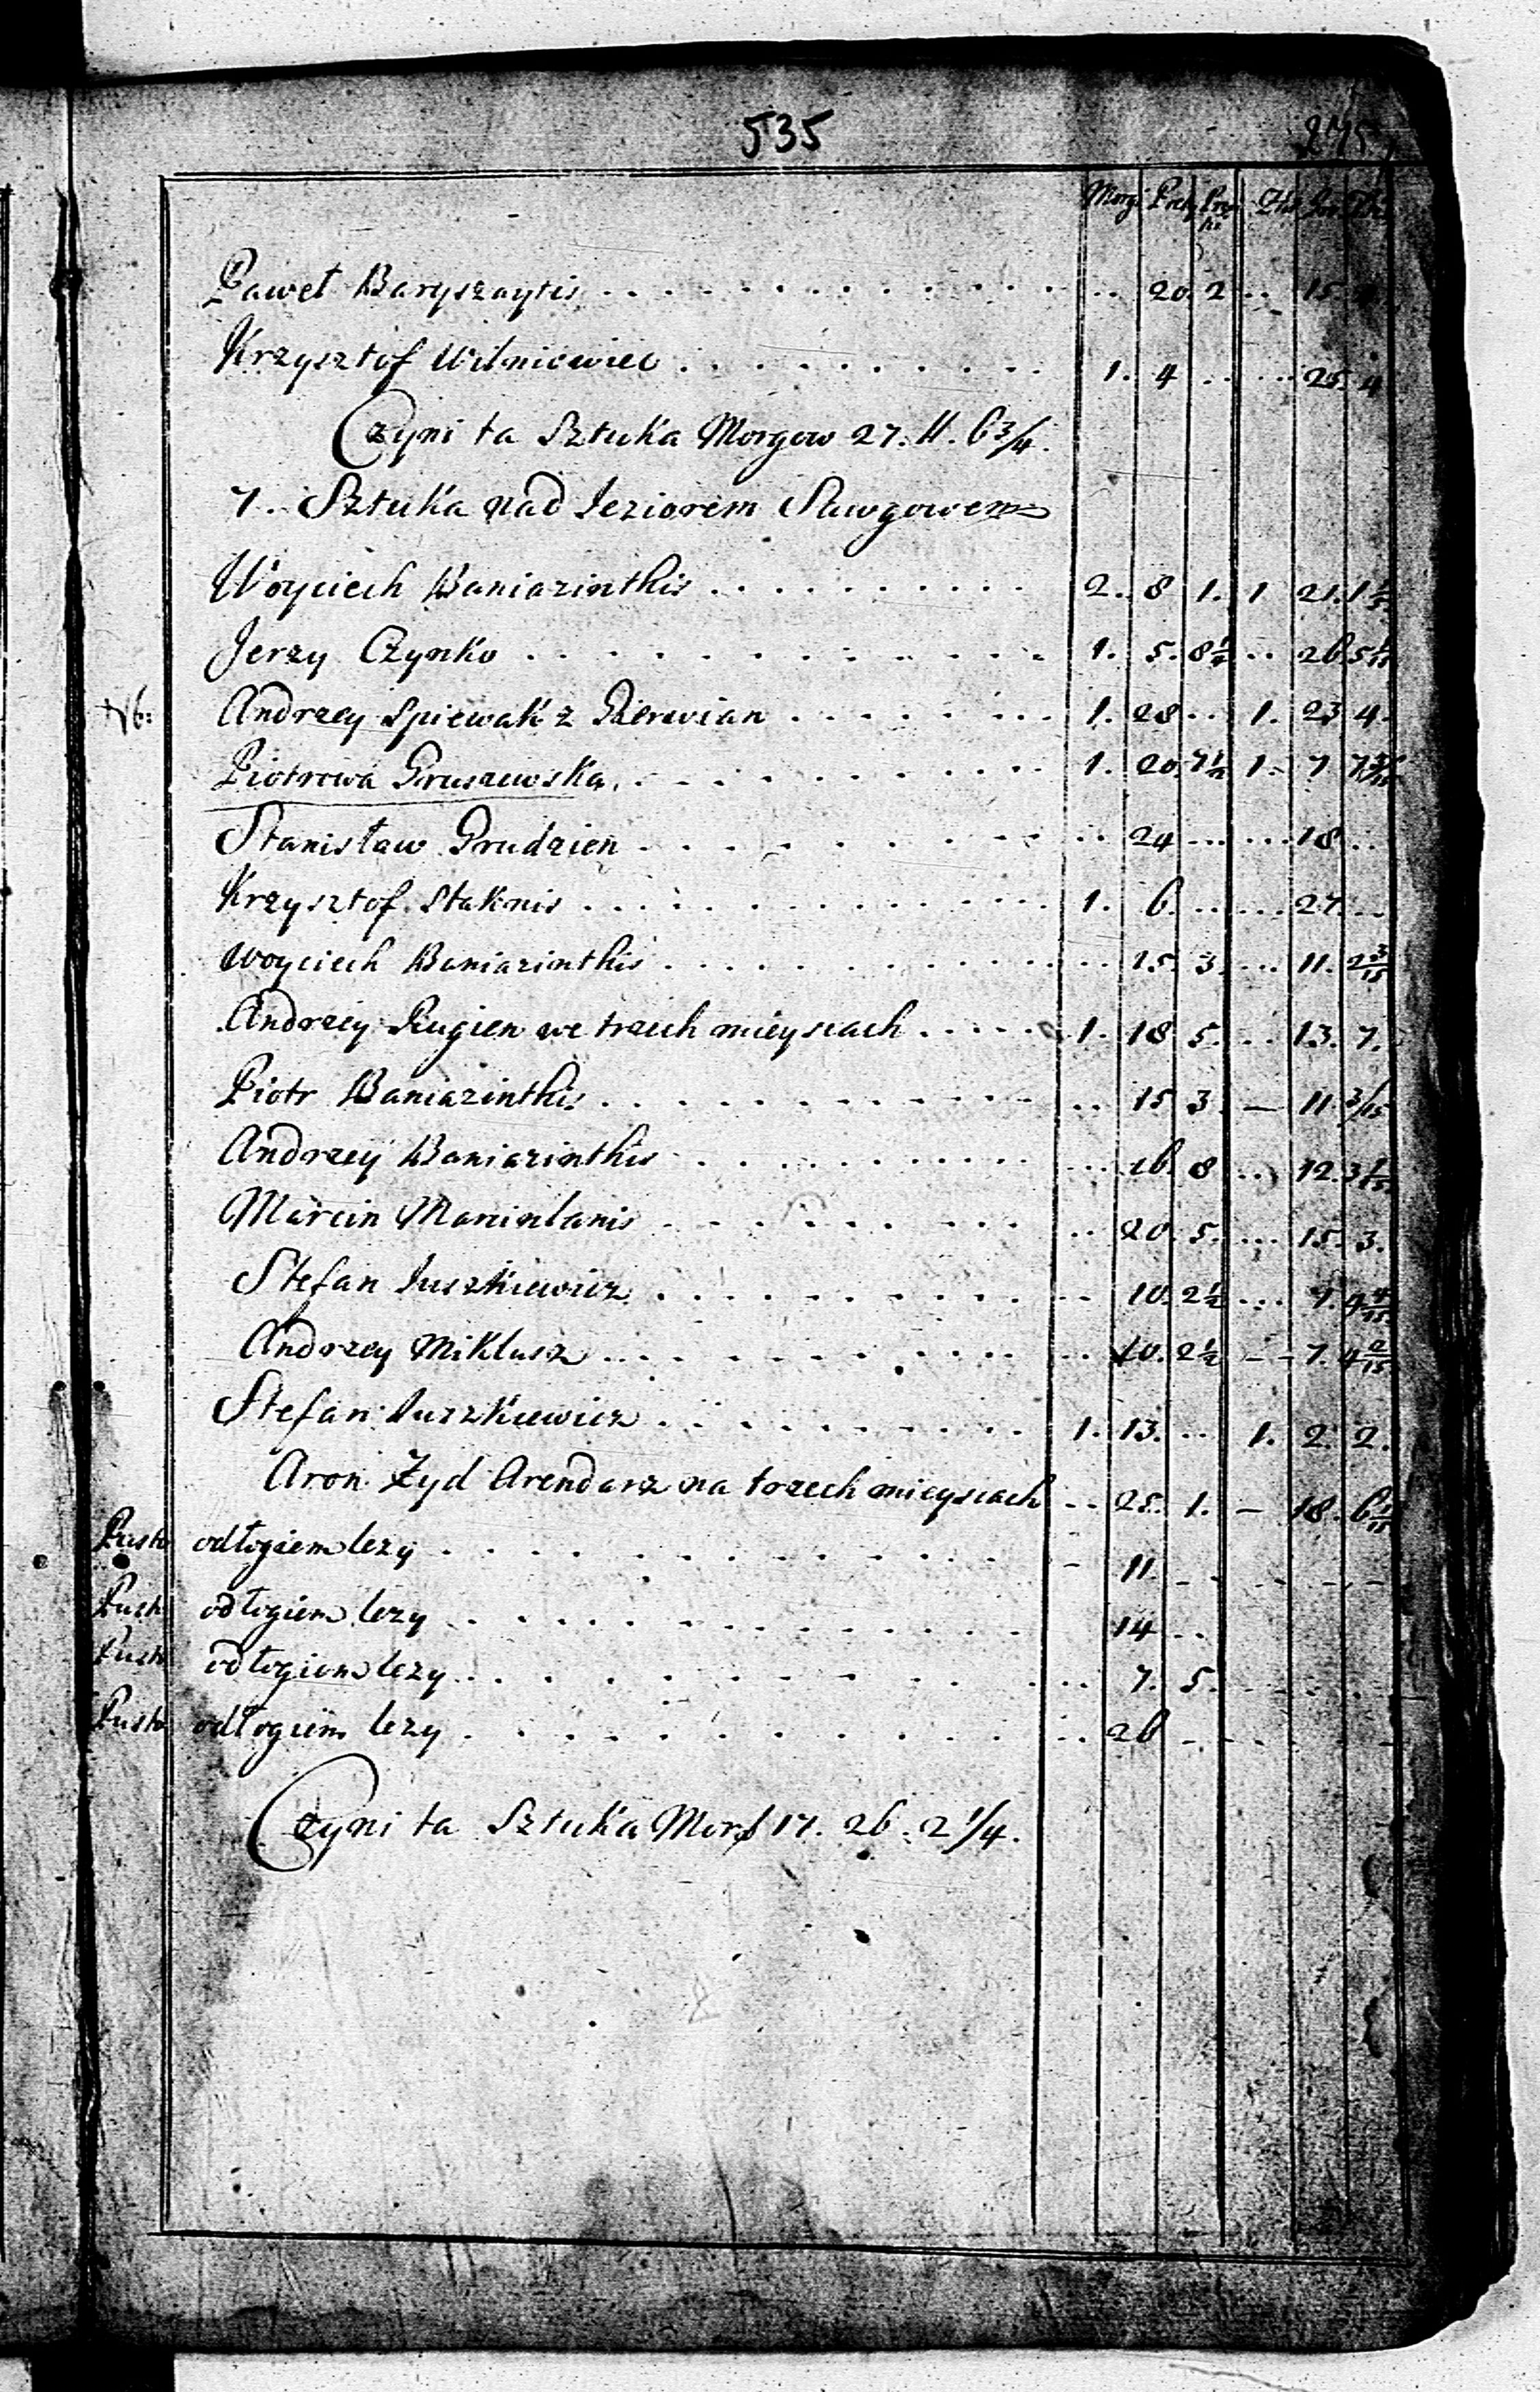 535
Morg. Pręt.
Paweł Baryszaytis . . . . . . . . . . . . . 20. 2 .. 15.
Krzysztof Wilniewiec . . . . . . . . . . 1. 4 .. ... 25. 4.
Czyni ta Sztuka Morgow 27. 11. 6 3/4.
7. Sztuka nad Ieziorem Sawgowem
Woyciech Baniazinthis . . . . . . . . . . 2. 8 1. 1 21. 1
Jerzy Czynko . . . . . . . . . . . . . 1. 5. 8 1/4 .. 26 5
Nb: Andrzey Spiewak z . . . . . . . 1. 28 ... 1. 23 4.
Piotrowa Gruszewska . . . . . . . . . . . 1. 20. 7 1/2 1. 7 7
Stanisław Grudzien . . . . . . . . . .. 24 ... ... 18 ...
Krzysztof Staknis . . . . . . . . . . . . 1. 6. ... ... 27. ...
Woyciech Baniazinthis . . . . . . . . . . .. 15. 3. ... 11. 2 3/15
Andrzey Rugien we trzech mieyscach . . . . . 1. 18 5. .. 13. 7.
Piotr Baniazinthis . . . . . . . . . . . .. 15 3. — 11. 3/15
Andrzey Baniazinthis . . . . . . . . . . ... 16. 8 ... 12. 3
Marcin Marcinlanis . . . . . . . . . .. 20. 5. ... 15. 3.
Stefan Iuszkiewicz . . . . . . . . . . -- 10. 2 1/2 ... 7. 4 4/15
Andrzey Miklusz . . . . . . . . . . . -- 10. 2 1/2 -- 7. 4 2/15
Stefan Iuszkiewicz . . . . . . . . . . 1. 13. ... 1. 2. 2.
Aron Żyd Arendarz na trzech mieyscach -- 25. 1. — 18. 6 1/15
Pusto odłogiem lezy . . . . . . . . . . . . - 11. - -
Pusto odłogiem lezy . . . . . . . . . . . . 14 ...
Pusto odłogiem lezy . . . . . . . . . . ... 7. 5.
Pusto odłogiem lezy . . . . . . . . . . . ... 26 - -
Czyni ta Sztuka Morg 17. 26. 2 1/4.